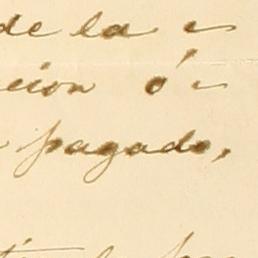 de la
cion ó
pagado,